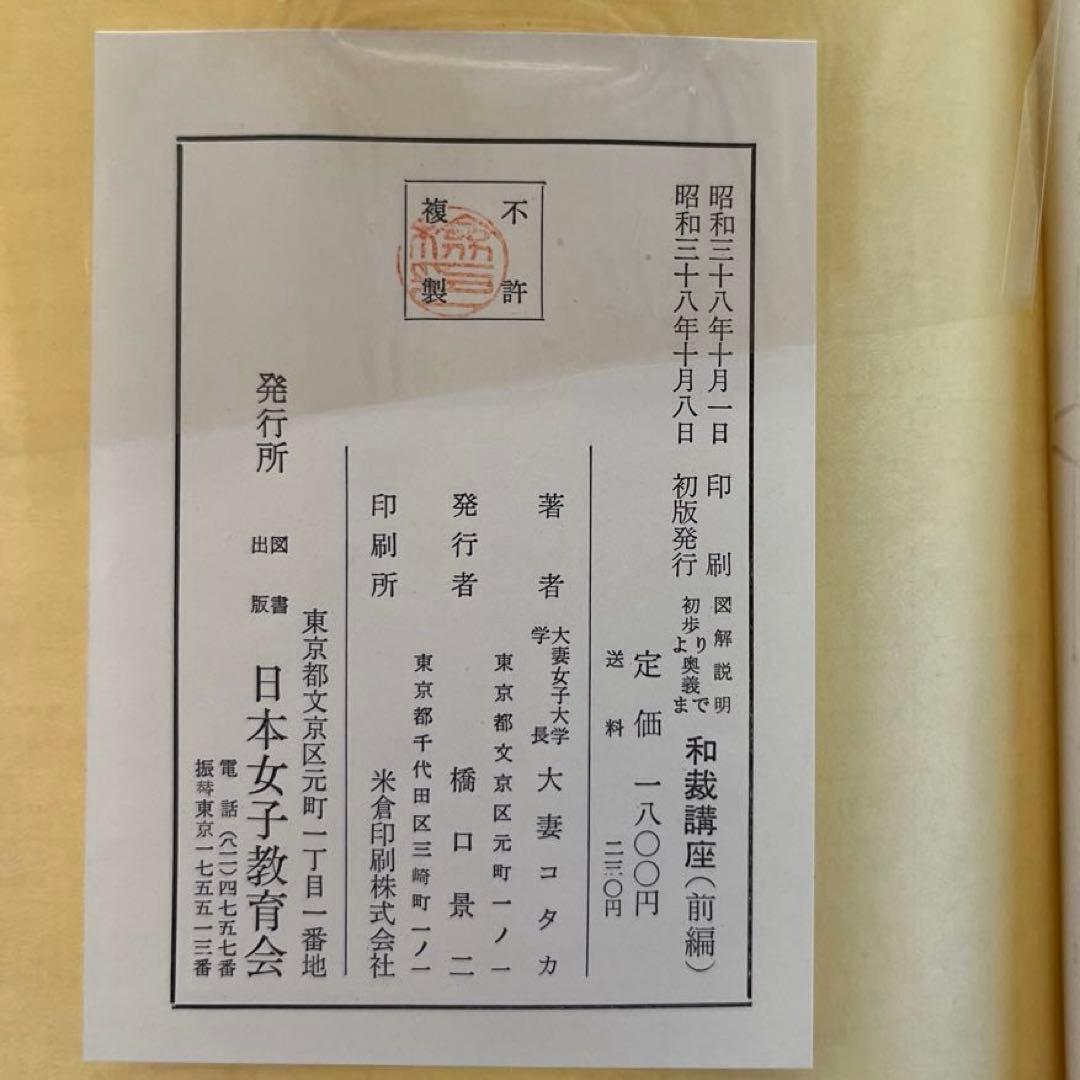 昭和三十八年十月一日　印　刷
昭和三十八年十月八日　初版発行
図解説明
初歩より奥義まで
和裁講座（前編）
定価　一八〇〇円
送料　二三〇円
不許
複製
著者
大妻女子大学
学長
大妻コタカ
東京都文京区元町一ノ一
発行者　橋口景二
東京都千代田区三崎町一ノ一
印刷所　米倉印刷株式会社
東京都文京区元町一丁目一番地
発行所
図書
出版
日本女子教育会
電話（八一一）四七五七番
振替東京一七五五一三番